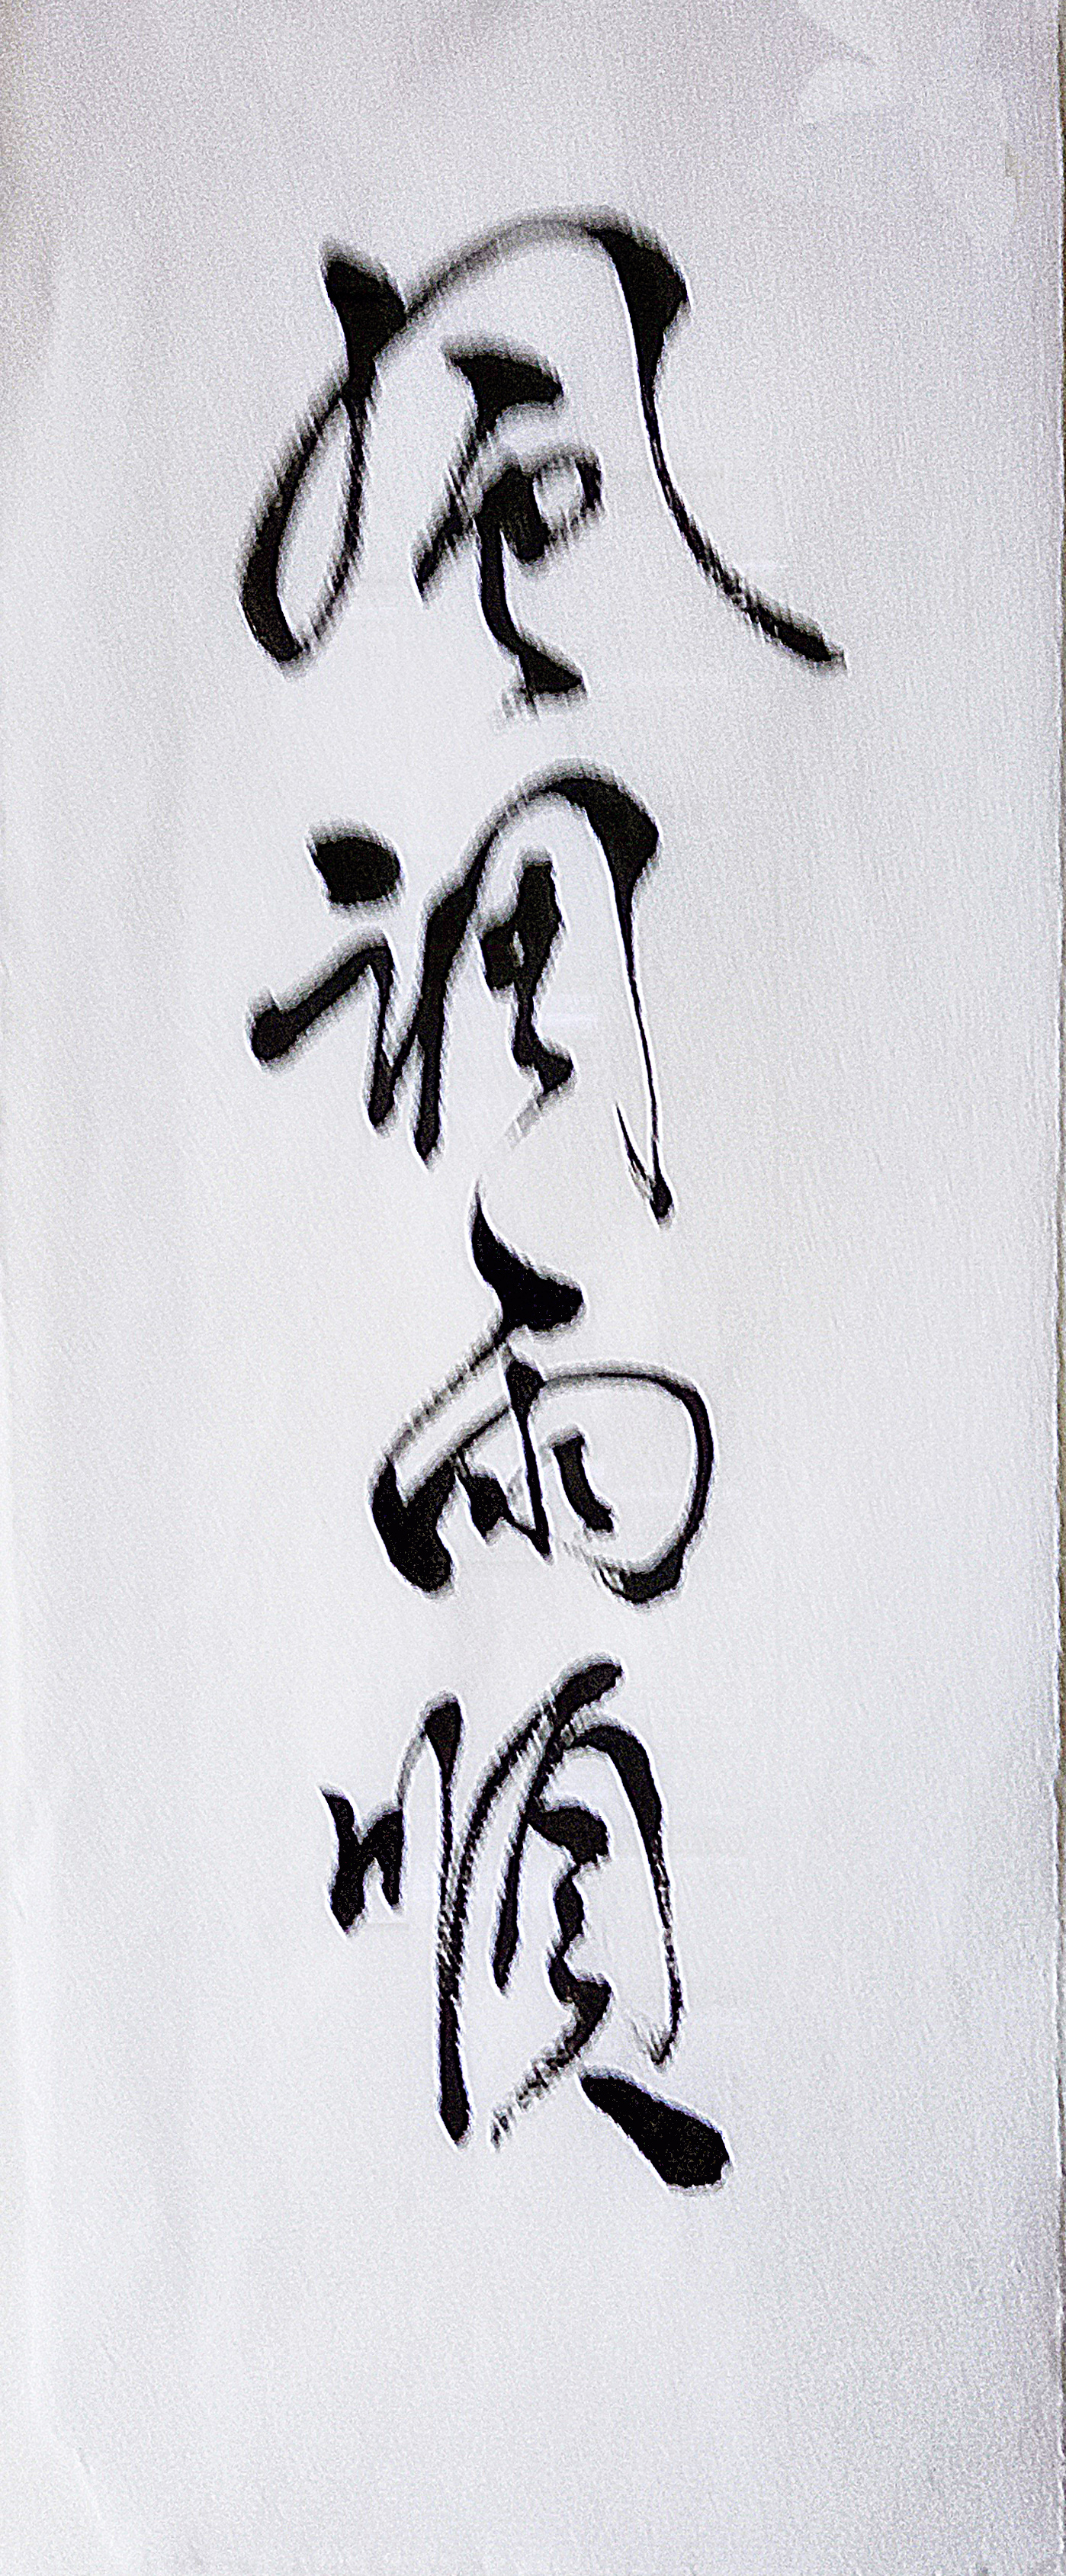 風調雨順